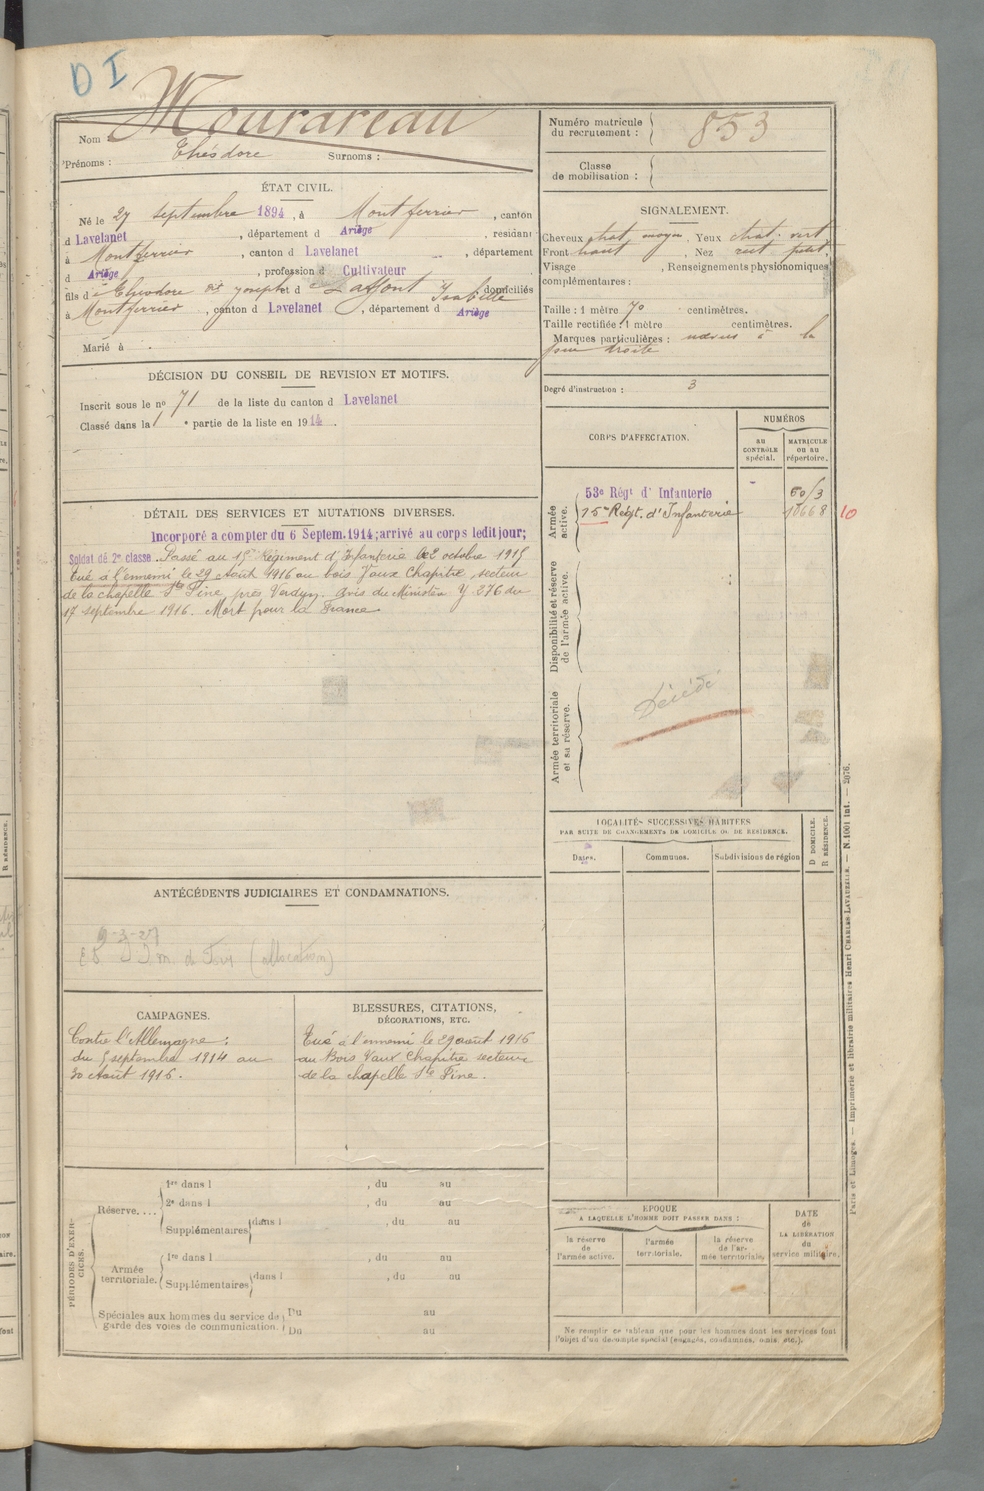 D I
Nom Mourareau
Prénoms : Théodore Surnoms :
ÉTAT CIVIL.
Né le 27 septembre 1894, à Montferrier, canton
d Lavelanet, département d Ariège, residant
à Montferrier, canton d Lavelanet, département
d Ariège, profession d Cultivateur
fils d Théodore dit Joseph et d Laffont Isabelle domiciliés
à Montferrier, canton d Lavelanet, département d Ariège
Marié à
DÉCISION DU CONSEIL DE REVISION ET MOTIFS.
Inscrit sous le no 71 de la liste du canton d Lavelanet
Classé dans la 1 e partie de la liste en 1914.
DÉTAIL DES SERVICES ET MUTATIONS DIVERSES.
Incorporé a compter du 6 Septem. 1914; arrivé au corps ledit jour;
Soldat de 2e classe. Passé au 15e Régiment d'Infanterie le 2 octobre 1915
tué à l'ennemi le 29 Août 1916 au bois Vaux Chapitre, secteur
de la chapelle Ste Fine, près Verdun. Avis du Ministère Y. 376 du
17 septembre 1916. Mort pour la France
ANTÉCÉDENTS JUDICIAIRES ET CONDAMNATIONS.
9-3-27
(allocation)
CAMPAGNES.
Contre l'Allemagne :
du 5 septembre 1914 au
30 Août 1916.
BLESSURES, CITATIONS,
DÉCORATIONS, ETC.
Tué à l'ennemi le 29 août 1916
au Bois Vaux Chapitre secteur
de la chapelle Ste Fine.
PÉRIODES D'EXERCICES.
Réserve....
1re dans l , du au
2e dans l , du au
Supplémentaires dans l , du au
Armée territoriale.
1re dans l , du au
Supplémentaires dans l , du au
Spéciales aux hommes du service de garde des voies de communication.
Du au
Du au
Numéro matricule du recrutement : 853
Classe de mobilisation :
SIGNALEMENT.
Cheveux chat. moyen, Yeux chat. vert
Front haut, Nez rect. petit.
Visage , Renseignements physionomiques
complémentaires :
Taille : 1 mètre 70 centimètres.
Taille rectifiée : 1 mètre centimètres.
Marques particulières : nævus à la
joue droite
Degré d'instruction : 3
CORPS D'AFFECTATION.
NUMÉROS
AU CONTRÔLE spécial.
MATRICULE OU AU répertoire.
Armée active.
53e Régt d'Infanterie
15e Régt. d'Infanterie 10668 10
Disponibilité et réserve de l'armée active.
Armée territoriale et sa réserve.
Décédé
LOCALITÉS SUCCESSIVES HABITÉES
PAR SUITE DE CHANGEMENTS DE DOMICILE OU DE RÉSIDENCE.
Dates. Communes. Subdivisions de région
D DOMICILE.
R RÉSIDENCE.
ÉPOQUE
A LAQUELLE L'HOMME DOIT PASSER DANS :
la réserve de l'armée active.
l'armée territoriale.
la réserve de l'armée territoriale.
DATE
de
LA LIBÉRATION
du
service militaire.
Ne remplir ce tableau que pour les hommes dont les services font
l'objet d'un décompte spécial (engagés, condamnés, omis, etc.).
Paris et Limoges. — Imprimerie et librairie militaires Henri CHARLES-LAVAUZELLE. — N. 1001 Int. — 2076.